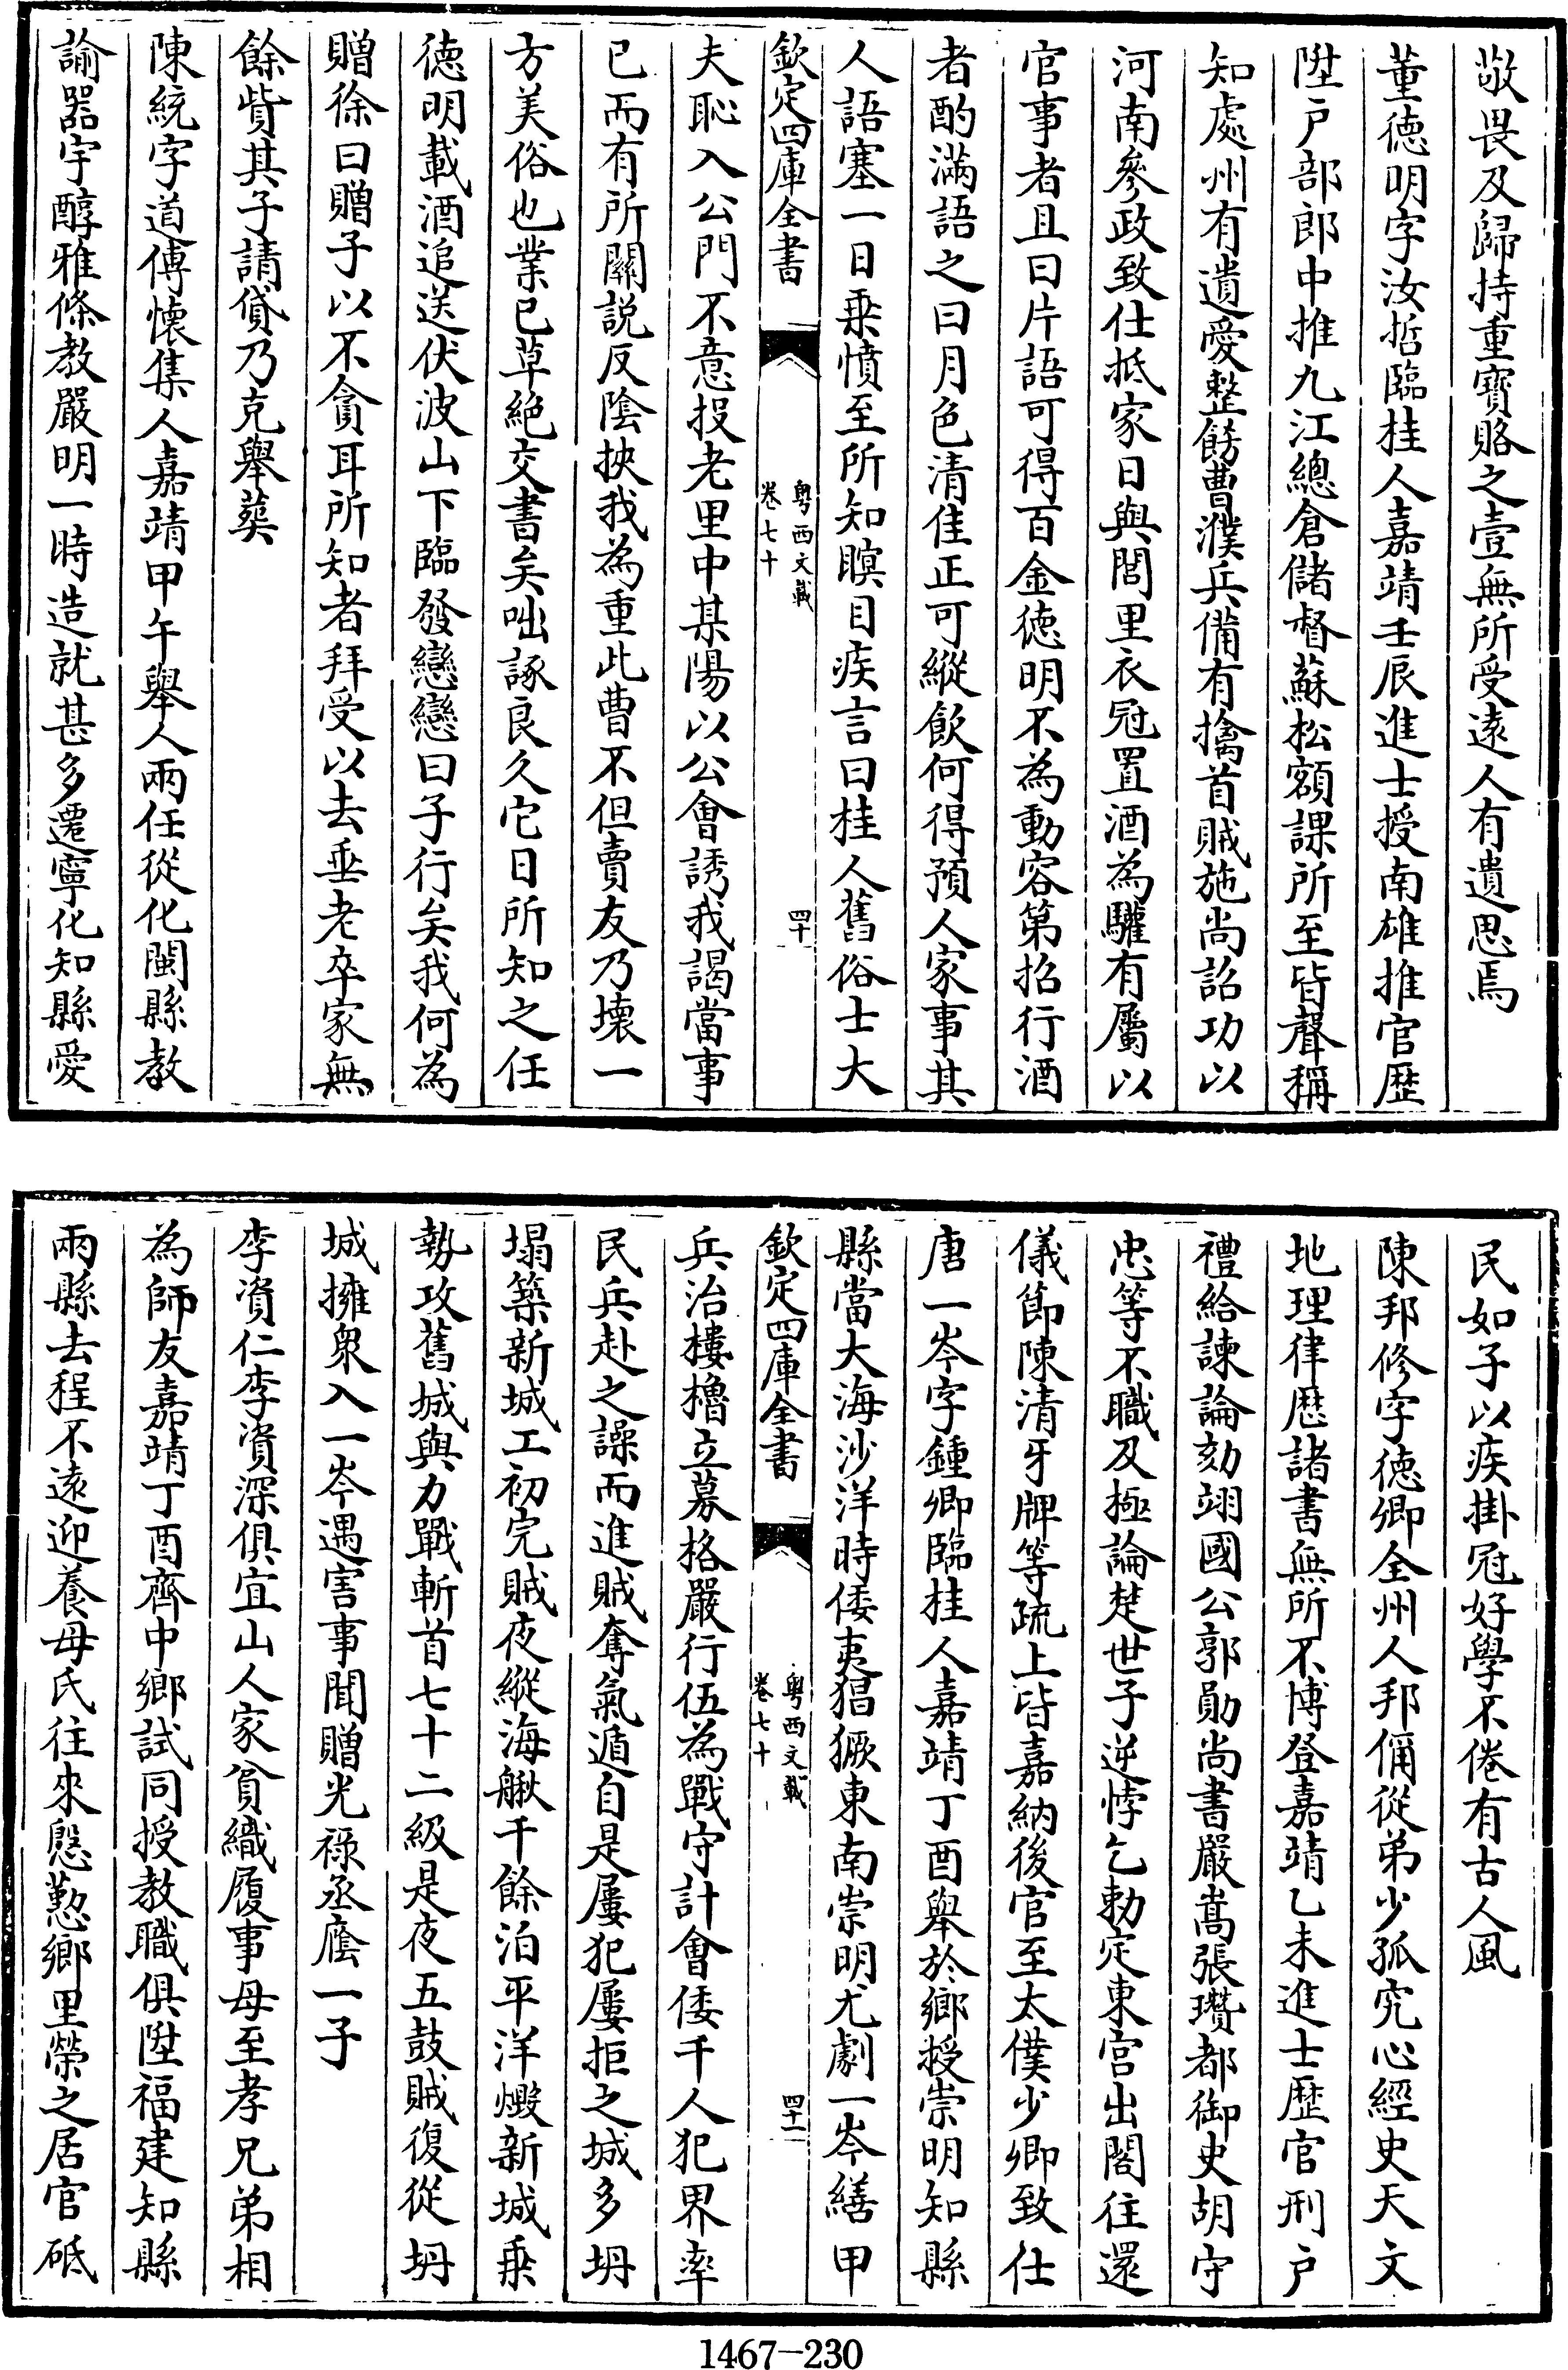 敬畏及歸持重寶賂之壹無所受逺人有遺思焉
董徳明字汝哲臨桂人嘉靖壬辰進士授南雄推官歴
陞户部郎中推九江總倉儲督蘇松額課所至皆聲稱
知處州有遺愛整飭曹濮兵備有擒首賊施尚詔功以
河南參政致仕抵家日與閭里衣冠置酒為驩有屬以
官事者且曰片語可得百金徳明不為動容第招行酒
者酌滿語之曰月色清佳正可縱飲何得預人家事其
人語塞一日乗憤至所知瞑目疾言曰桂人舊俗士大
欽定四庫全書
粤西文載
卷七十
四十
夫恥入公門不意投老里中某陽以公會誘我謁當事
已而有所關説反陰挾我為重此曹不但賣友乃壊一
方美俗也業已草絶交書矣咄諑良久它日所知之任
徳明載酒追送伏波山下臨發戀戀曰子行矣我何為
贈徐曰贈子以不貪耳所知者拜受以去垂老卒家無
餘貲其子請貸乃克舉葬
陳統字道傅懐集人嘉靖甲午舉人兩任從化閩縣教
諭器宇醇雅條教嚴明一時造就甚多遷寧化知縣愛
民如子以疾掛冠好學不倦有古人風
陳邦修字徳卿全州人邦偁從弟少孤究心經史天文
地理律歴諸書無所不博登嘉靖乙未進士歴官刑户
禮給諫論劾翊國公郭勛尚書嚴嵩張瓚都御史胡守
忠等不職及極論楚世子逆悖乞勅定東宫出閣往還
儀節陳清牙牌等疏上皆嘉納後官至太僕少卿致仕
唐一岑字鍾卿臨桂人嘉靖丁酉舉於鄉授崇明知縣
縣當大海沙洋時倭夷猖獗東南崇明尤劇一岑繕甲
欽定四庫全書
粤西文載
卷七十
四十一
兵治樓櫓立募格嚴行伍為戰守計會倭千人犯界率
民兵赴之譟而進賊奪氣遁自是屢犯屢拒之城多坍
塌築新城工初完賊夜縱海艍千餘泊平洋燬新城乗
勢攻舊城與力戰斬首七十二級是夜五鼓賊復從坍
城擁衆入一岑遇害事聞贈光禄丞廕一子
李資仁李資深俱宜山人家貧織履事母至孝兄弟相
為師友嘉靖丁酉齊中鄉試同授教職俱陞福建知縣
兩縣去程不逺迎養母氏往來慇懃鄉里榮之居官砥
1467-230